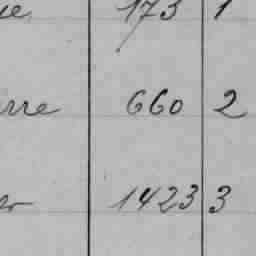 173 1
rre 660 2
1423 3